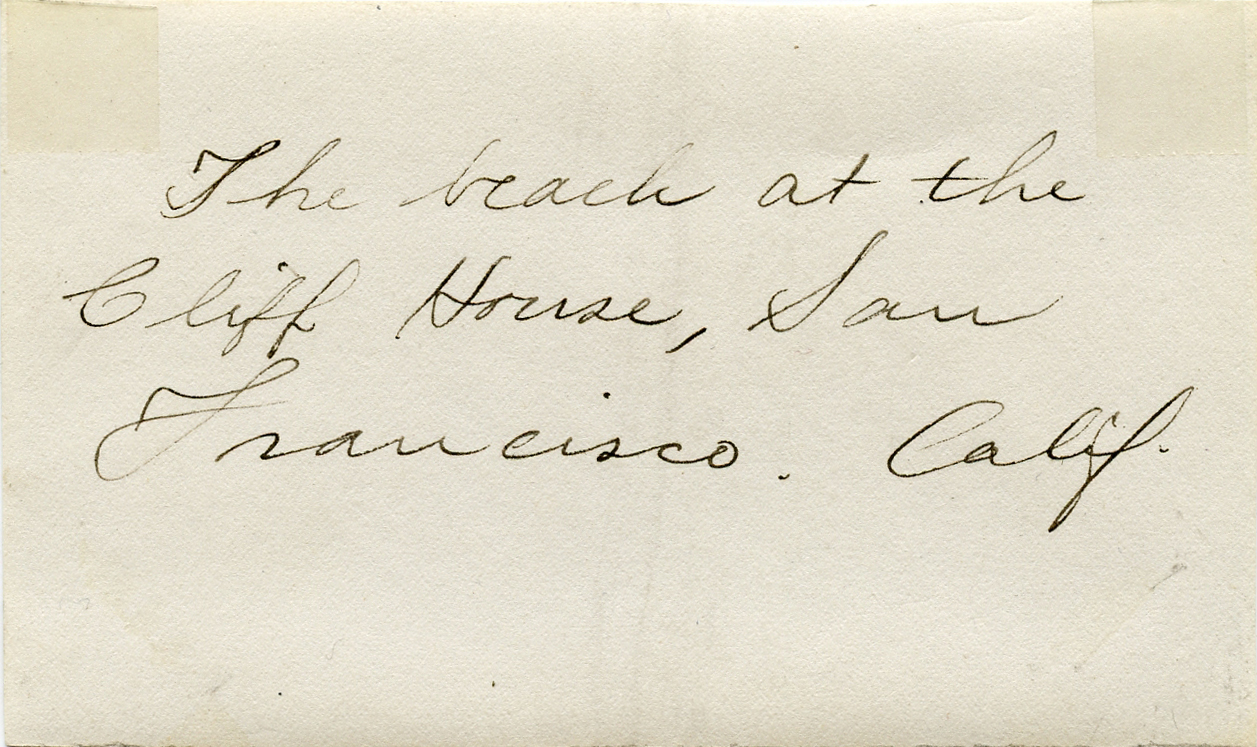 The beach at the
Cliff House, San
Francisco. Calif.